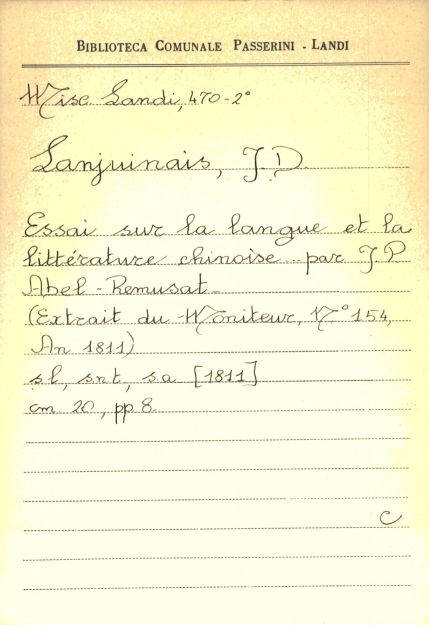 BIBLIOTECA COMUNALE PASSERINI - LANDI
Misc. Landi, 470-2°
Lanjuinais, J.D.
Essai sur la langue et la
littérature chinoise .. par J.P.
Abel-Remusat
(Extrait du Moniteur, N° 154,
An 1811)
s.l, s.n.t, s.a [1811]
cm 20, pp 8.
C